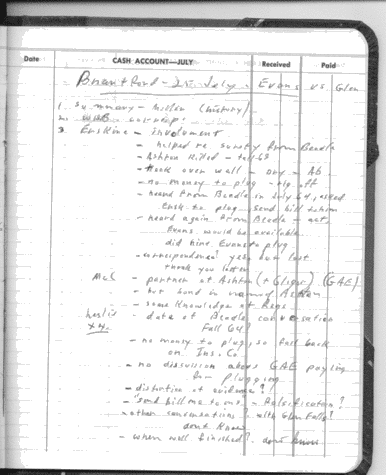 Date CASH ACCOUNT—JULY Received Paid
Brantford - July - Evans vs. Glen
1. Summary - Milton (history)
2.
3. Erskine - involvment
- helped re surety from Beadle
- Ashton killed - Feb 63
- took over wall - any - Ab
- no money to plug - rig off
- heard from Beadle in July 64, asked
Ersk. to plug - send bill to him
- heard again from Beadle - Oct,
Evans would be available
did hire Evans to plug
- correspondence? yes, but lost
thank you letter
McC - partner of Ashton (+ Gligor) (GAE)
- but bond in name of Ashton
- some knowledge of Regs
Leslie - date of Beadle conversation
x4. Fall 64?
- no money to plug, so fall back
on Ins. Co.
- no discussion about GAE paying
for plugging
- distortion of evidence?!
- "send bill me to me" - falsification?
- other conversations? with Glen Falls?
dont know
- when well finished? dont know